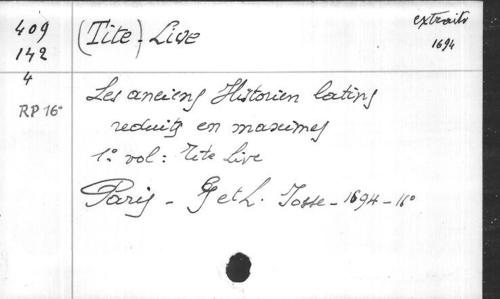 409
142
4
RP 16°
(Tite)-Live
extraits
1694
Les anciens Historien latins
reduits en maximes
1° vol: Tite Live
Paris - G et L. Josse - 1694 - 16°